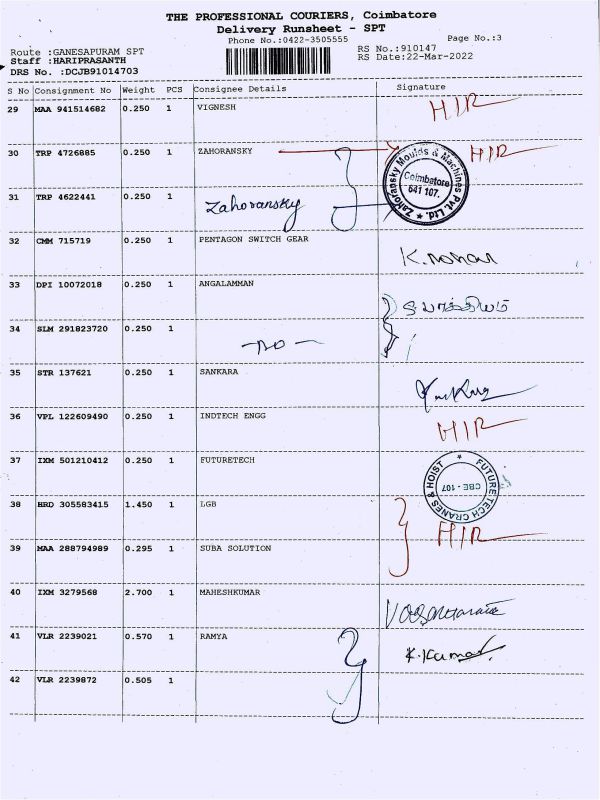 THE PROFESSIONAL COURIERS, Coimbatore
Delivery Runsheet - SPT
Phone No.:0422-3505555 Page No.:3
Route :GANESAPURAM SPT RS No.:910147
Staff :HARIPRASANTH RS Date:22-Mar-2022
DRS No. :DCJB91014703
S No Consignment No Weight PCS Consignee Details Signature
29 MAA 941514682 0.250 1 VIGNESH HIR
30 TRP 4726885 0.250 1 ZAHORANSKY HIR
Zahoransky Moulds & Machines Pvt. Ltd.
Coimbatore
641 107.
31 TRP 4622441 0.250 1 Zahoransky
32 CMM 715719 0.250 1 PENTAGON SWITCH GEAR
33 DPI 10072018 0.250 1 ANGALAMMAN
34 SLM 291823720 0.250 1 -DO-
35 STR 137621 0.250 1 SANKARA
36 VPL 122609490 0.250 1 INDTECH ENGG HIR
37 IXM 501210412 0.250 1 FUTURETECH
FUTURE TECH CRANES & HOIST
CBE - 107
38 HRD 305583415 1.450 1 LGB HIR
39 MAA 288794989 0.295 1 SUBA SOLUTION
40 IXM 3279568 2.700 1 MAHESHKUMAR
41 VLR 2239021 0.570 1 RAMYA K.Kumar
42 VLR 2239872 0.505 1